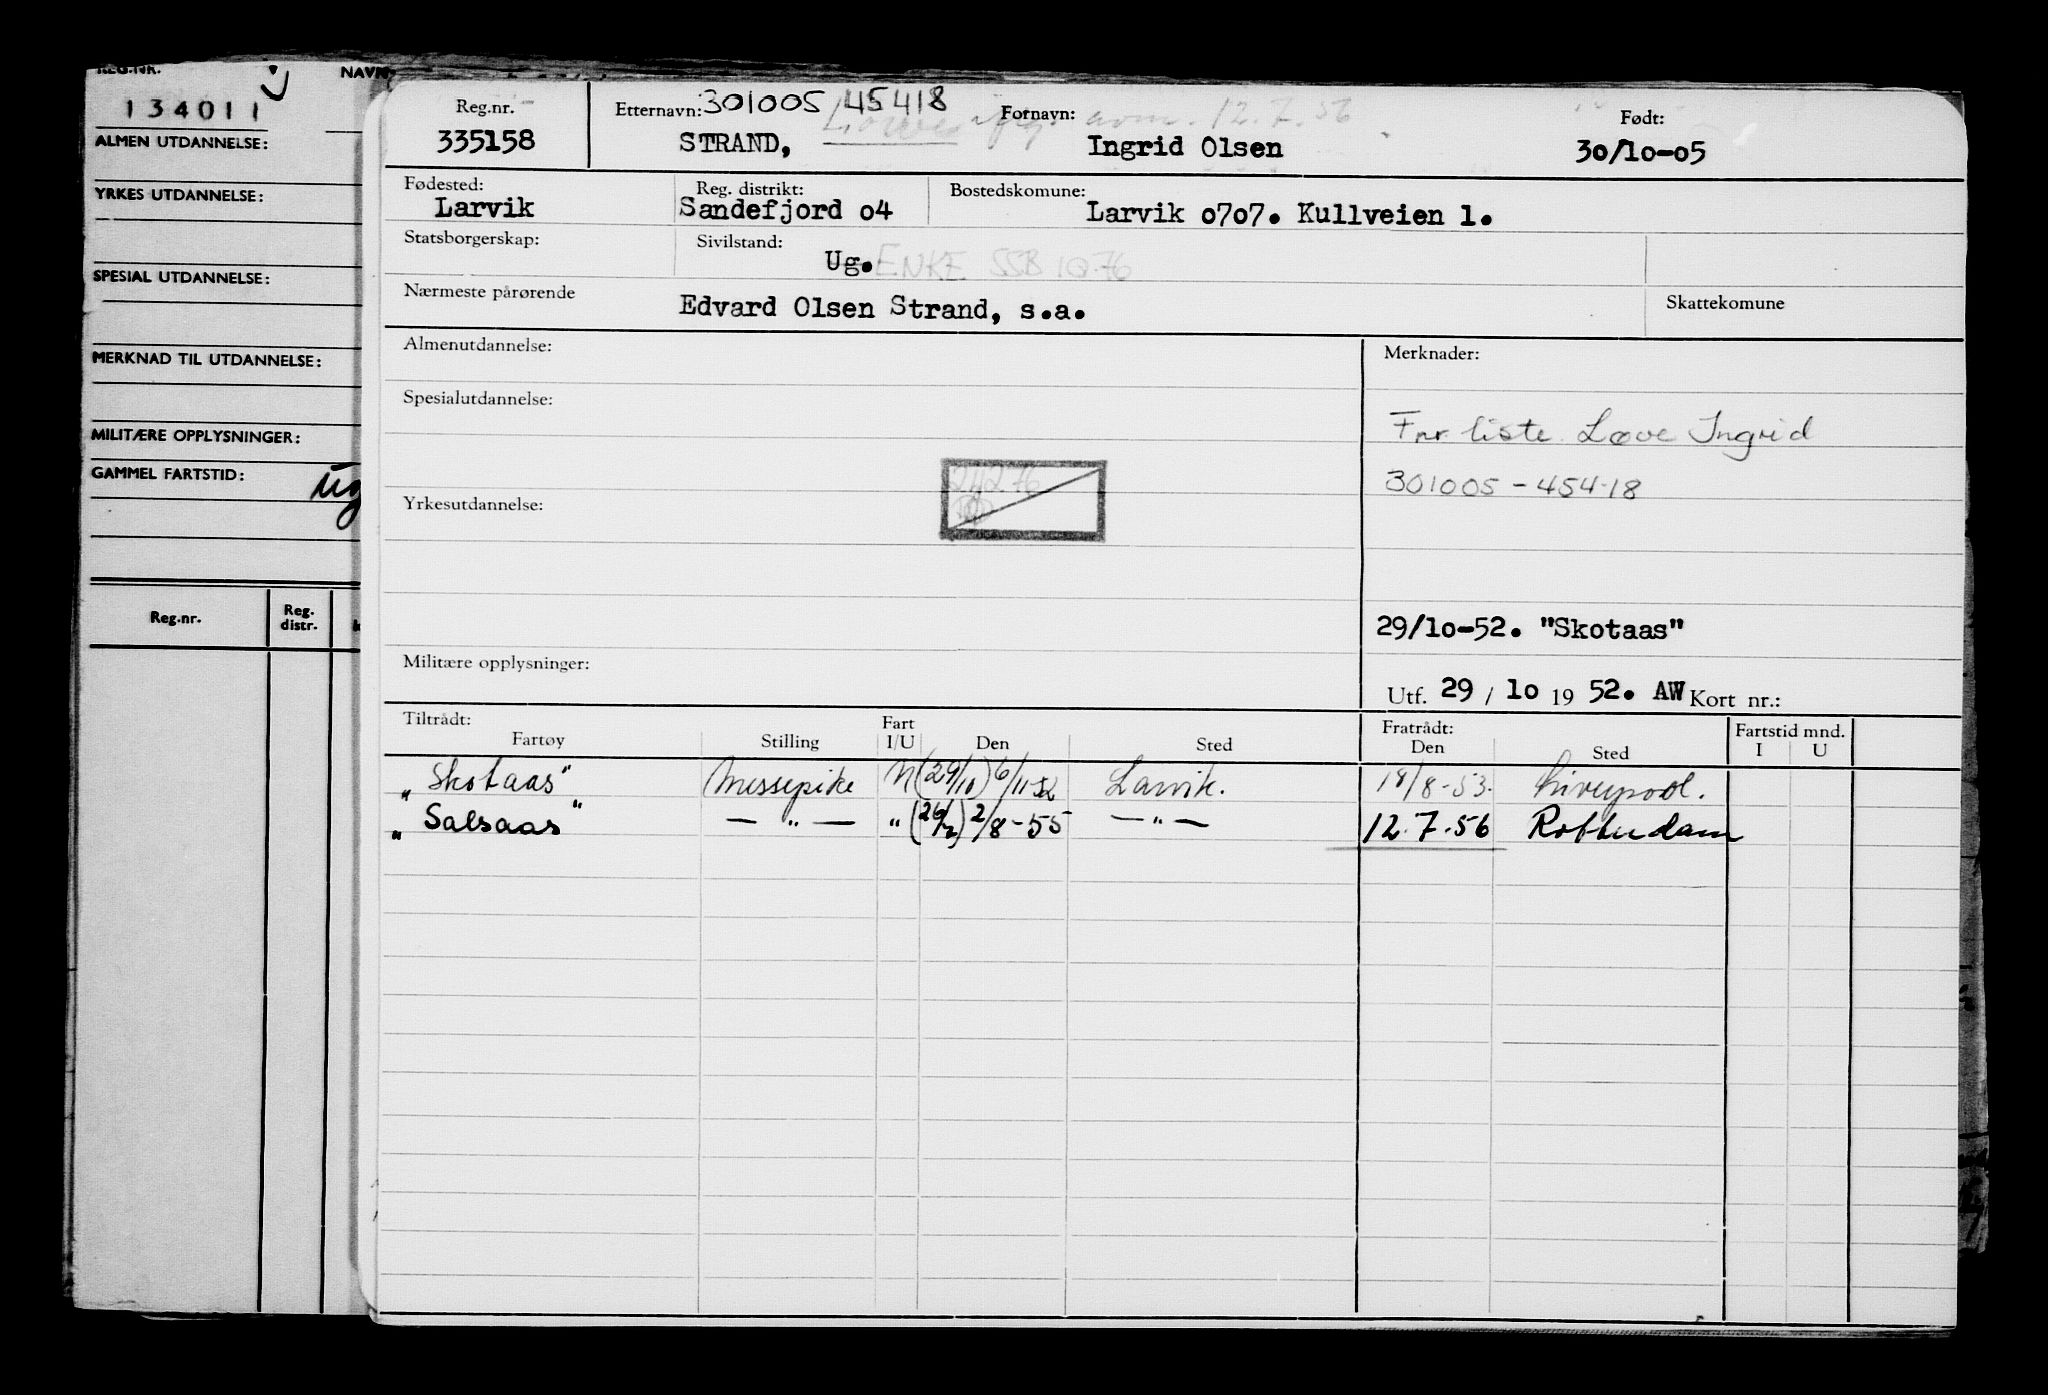 REG.NR.
NAVN
134011
ALMEN UTDANNELSE:
YRKES UTDANNELSE:
SPESIAL UTDANNELSE:
MERKNAD TIL UTDANNELSE:
MILITÆRE OPPLYSNINGER:
GAMMEL FARTSTID:
ug
Reg.nr. Reg. distr.
301005 45418
12.7.56
Reg.nr. Etternavn: Fornavn: Født:
335158 STRAND, Ingrid Olsen 30/10-05
Fødested: Reg. distrikt: Bostedskomune:
Larvik Sandefjord 04 Larvik 0707. Kullveien 1.
Statsborgerskap: Sivilstand:
Ug. ENKE SSB 10.76
Nærmeste pårørende Edvard Olsen Strand, s.a. Skattekomune
Almenutdannelse: Merknader:
Spesialutdannelse:
Fnr liste Løve Ingrid
301005-45418
24276
Yrkesutdannelse:
29/10-52. "Skotaas"
Militære opplysninger:
Utf. 29 / 10 19 52. AW Kort nr.:
Tiltrådt: Fart Fratrådt: Fartstid mnd.
Fartøy Stilling I/U Den Sted Den Sted I U
"Skotaas" Messepike N (29/10) 6/11-52 Larvik. 18/8-53. Liverpool.
"Salsaas" — " — " (26/2) 2/8-55 — " — 12.7.56 Rotterdam